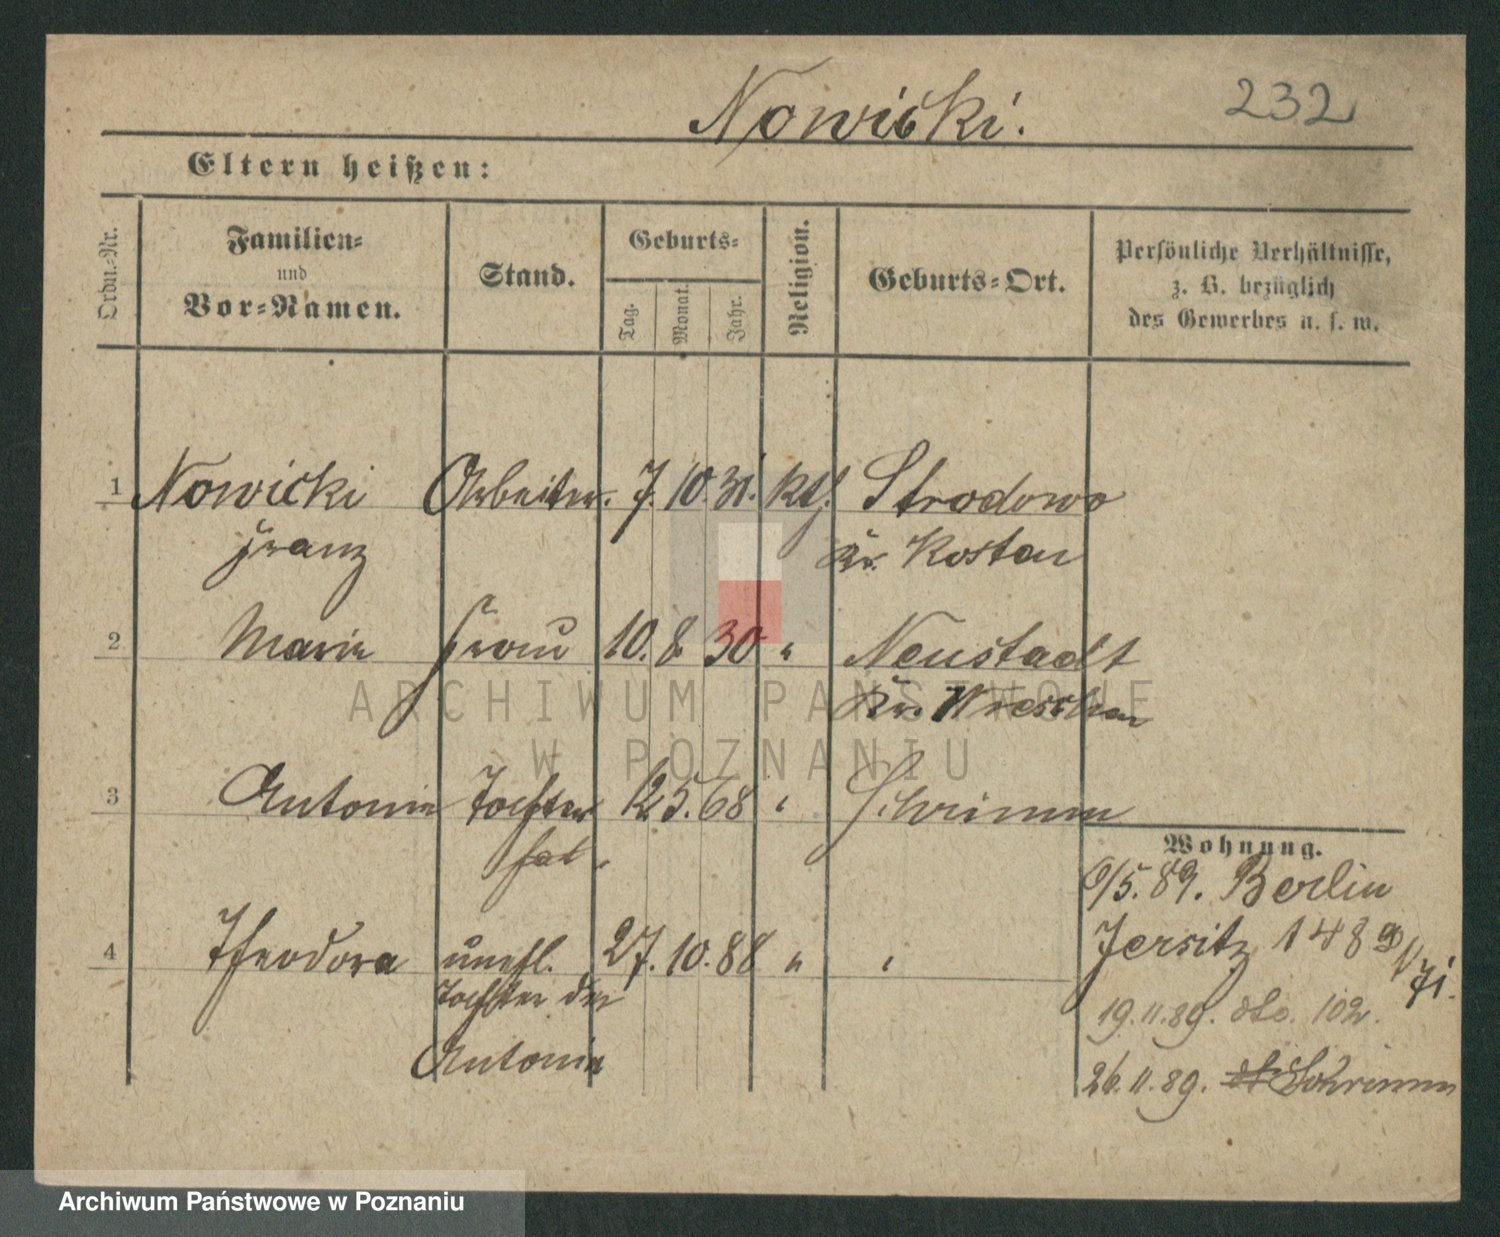 Nowicki.
232
Eltern heißen:
Ordn.-Nr.
Familien-
und
Vor-Namen.
Stand.
Geburts-
Tag.
Monat.
Jahr.
Religion.
Geburts-Ort.
Persönliche Verhältnisse,
z. B. bezüglich
des Gewerbes u. s. w.
1 Nowicki Arbeiter. 7. 10. 31. kth. Strodowo
Franz Kr. Kosten
2 Marie Frau 10. 8 30 " Neustadt
Kr. Wreschen
ARCHIWUM PAŃSTWOWE
W POZNANIU
3 Antonie Tochter 12 5. 68 " Schrimm
Wohnung.
6/5. 89. Berlin
4 Theodora unehl. 27. 10. 88 " "
Tochter der
Antonie
Jersitz 148
71.
19. 11. 89. dto. 102.
26. 11. 89. Schrimm
Archiwum Państwowe w Poznaniu